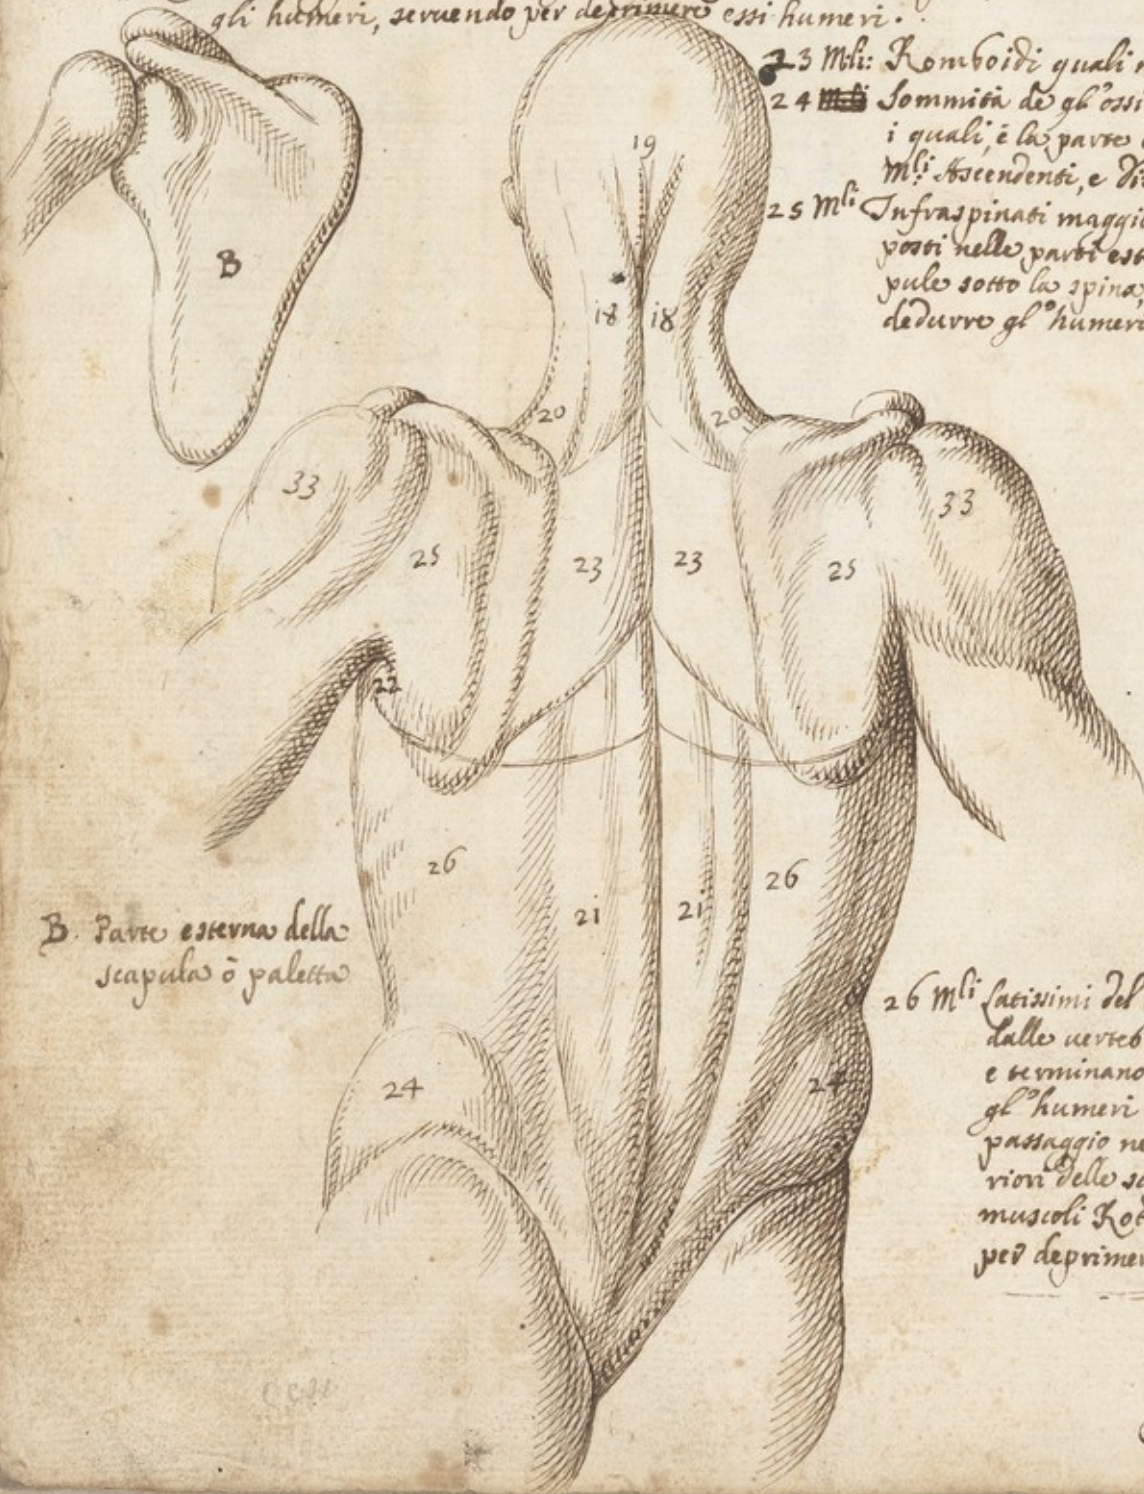 gli humeri, seruendo per deprimere essi humeri.
23 Mli: Romboidi quali
24 Sommità de gl'ossi
i quali, è la parte
Mli: Ascendenti, e
25 Mli Infraspinati maggi
posti nelle parti est
pule sotto la spina,
dedurre gl'humeri
B
19
18 18
20 20
33 33
25 23 23 25
22
26 26
21 21
B. Parte esterna della
scapula ò paletta
26 Mli Latissimi del
dalle verteb
e terminano
gl'humeri
passaggio ne
riori delle sc
muscoli Rot
per deprimer
24 24